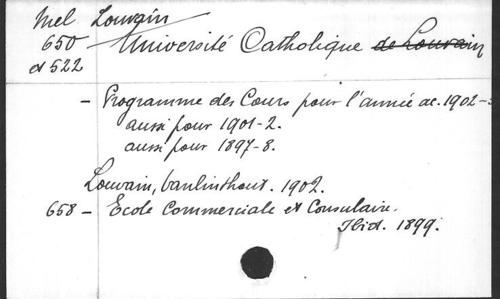 Mel Louvain
650 Université Catholique de Louvain
et 522
- Programme des Cours pour l'année ac. 1902-3
aussi pour 1901-2.
aussi pour 1897-8.
Louvain, vanlinthout. 1902.
658 - Ecole Commerciale et Consulaire.
Ibid. 1899.